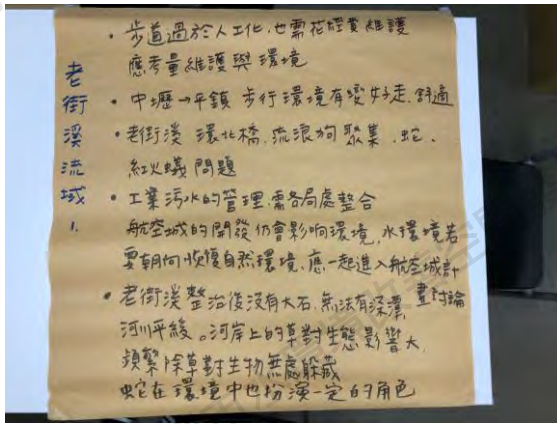 老街溪流域1.
• 步道過於人工化,也需花經費維護
應考量維護與環境
• 中壢→平鎮 步行環境有變好走、舒適
• 老街溪 環北橋,流浪狗聚集、蛇、
紅火蟻問題
• 工業污水的管理,需各局處整合
航空城的開發仍會影响環境,水環境若
要朝向恢復自然環境,應一起進入航空城計
畫討論
• 老街溪整治後沒有大石,無法有深潭,
河川平緩。河岸上的草對生態影響大,
頻繁除草對生物無處躲藏
蛇在環境中也扮演一定的角色